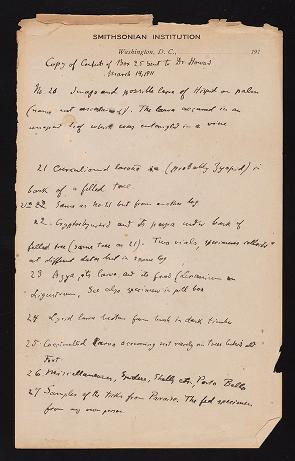 SMITHSONIAN INSTITUTION
Washington, D. C., 191
Copy of Contents of Box 25 sent to Dr Howard
March 19, 1911
No. 20 Imago and possible larva of Hispid on palm
(name not ascertained). The larva occurred in an
unopened leaf which was entangled in a vine
21 larva (probably Zygopid) in
bark of a felled tree
21a Same as No 21 but from another log
22 and its pupa under bark of
felled tree (same tree as 21). Two vials, specimens collected
at different dates but in same log
23 larva and its food (
. See also specimen in pill box
24 Lycid larva beaten from bush in dark timber
25 Coccinellid larva occurring not rarely on trees
Fort
26 Miscellaneous, Spiders, Shells etc. Porto Bello
27 Samples of the ticks from Paraiso. The fed specimen
from my own person